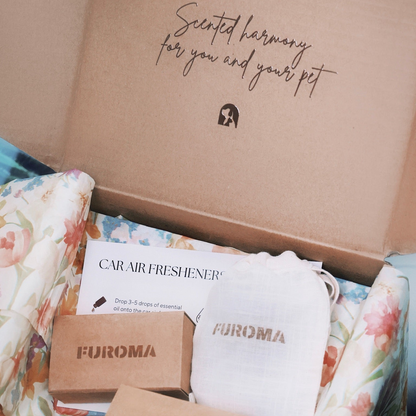 Scented harmony
for you and your pet
CAR AIR FRESHENERS
Drop 3-5 drops of essential
oil onto the
FUROMA
FUROMA